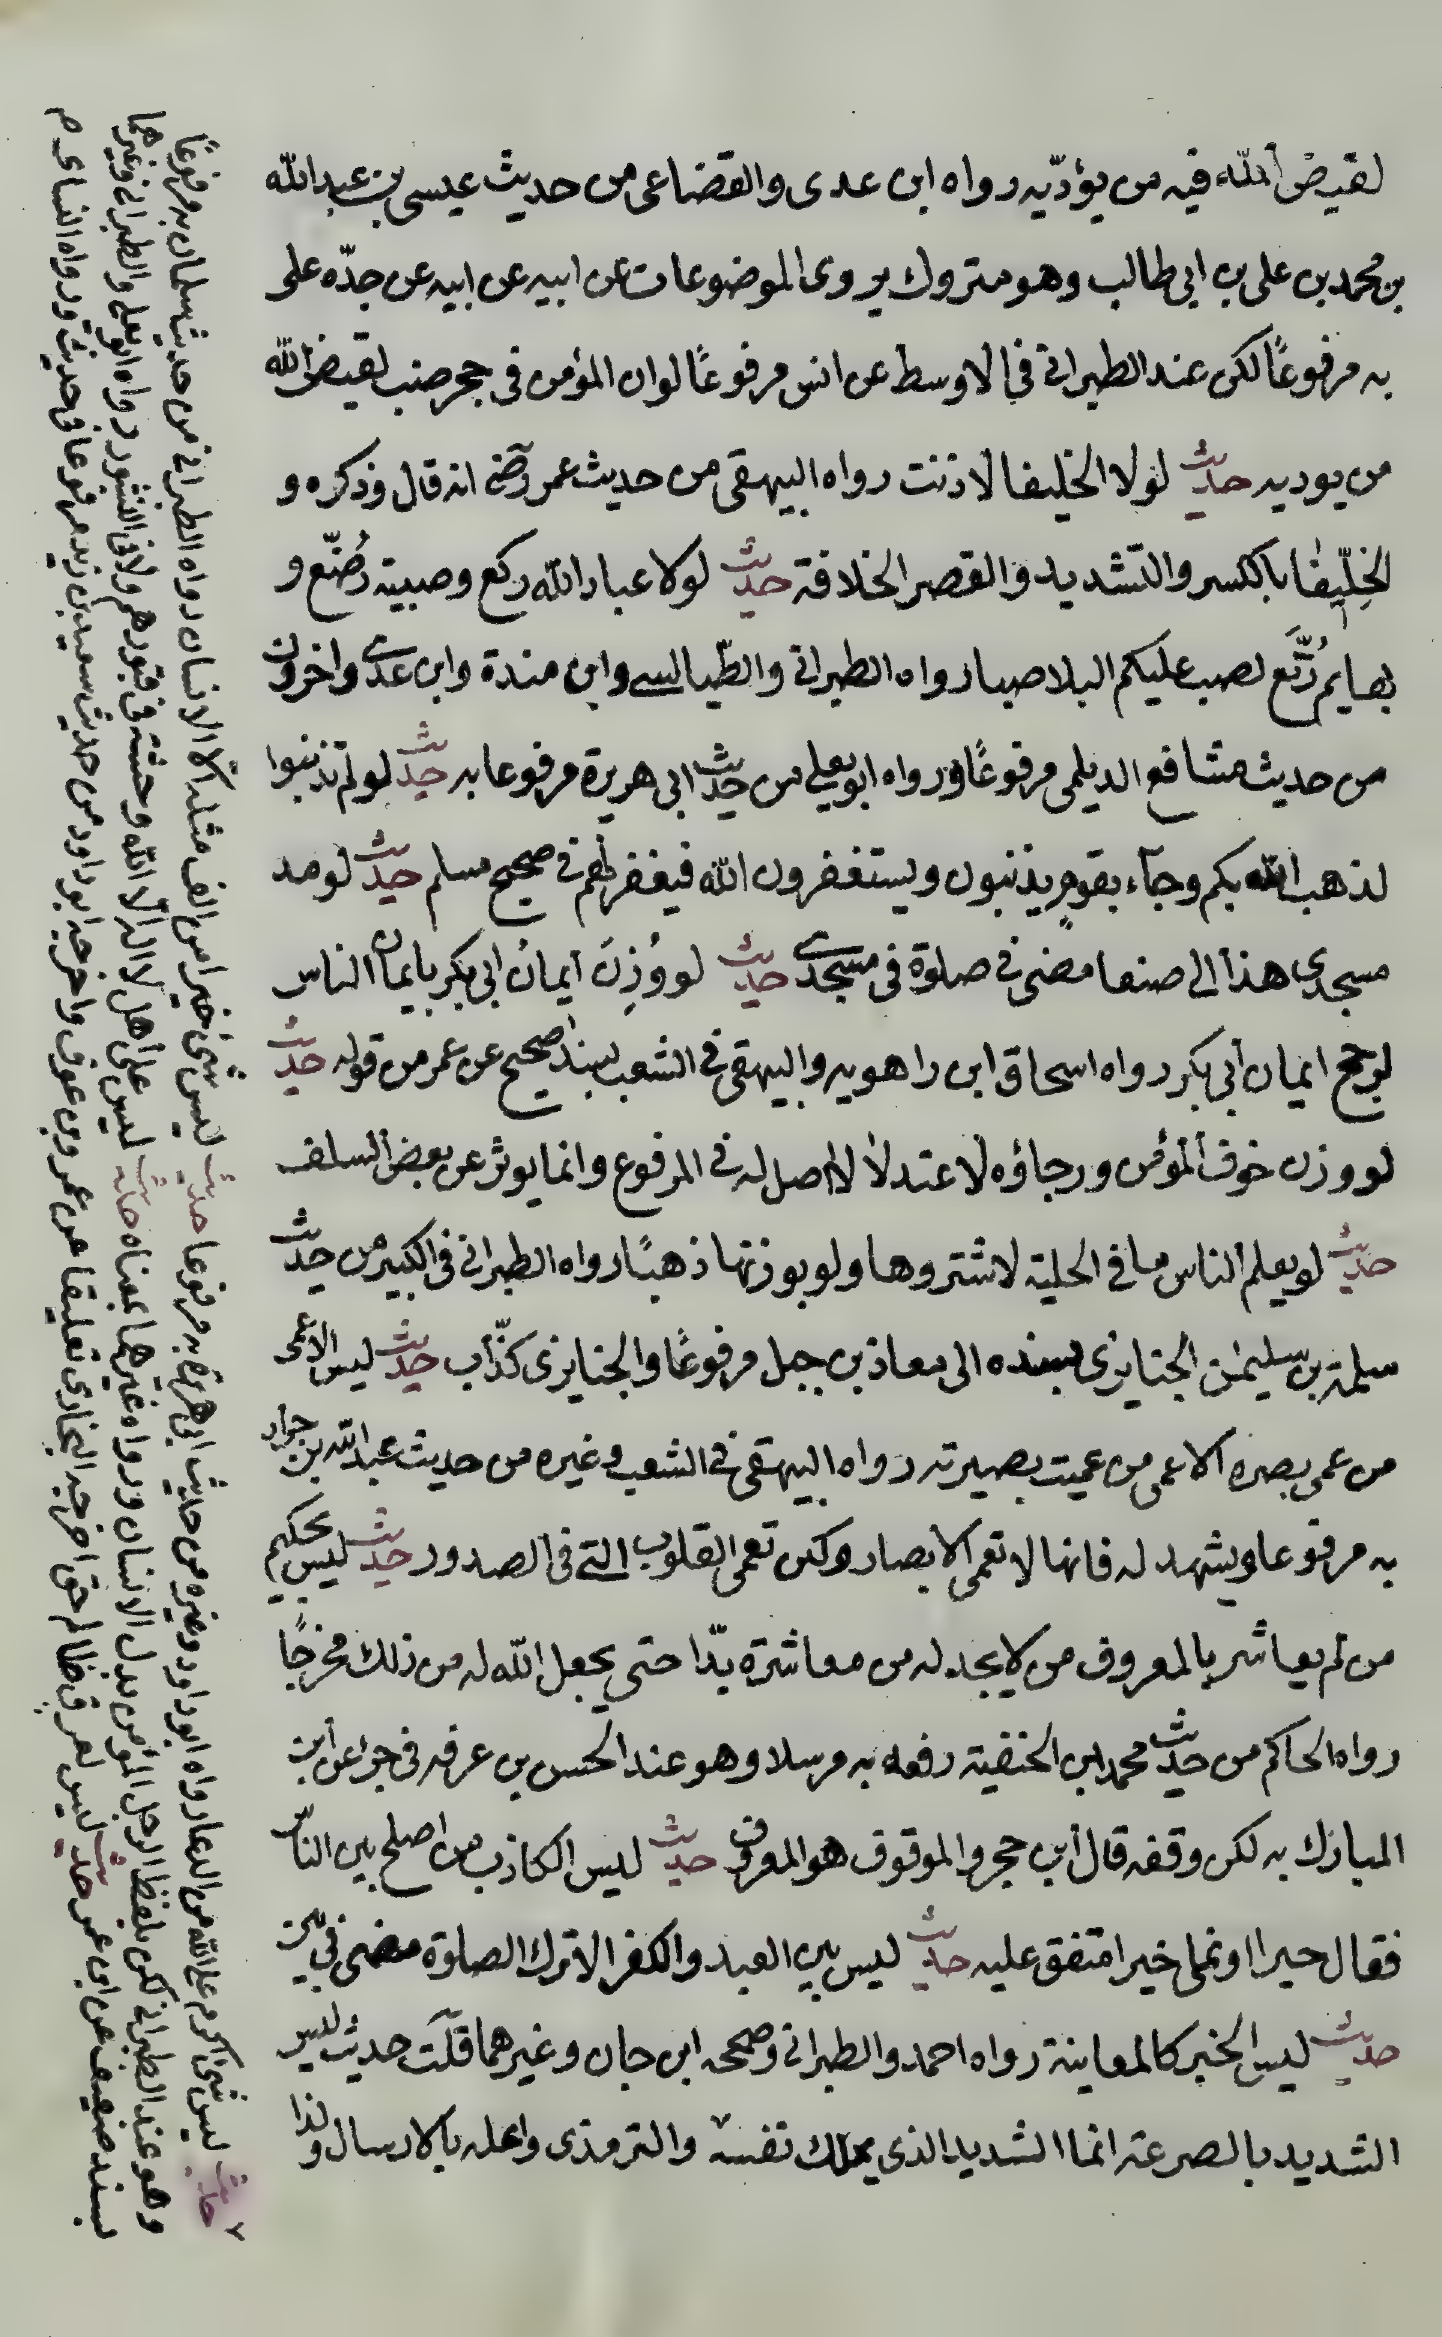 لقيض الله فيه من يؤذيه رواه ابن عدى والقضاعى من حديث عيسى بن عبد الله
بن محمد بن على بن ابى طالب وهو متروك يروى الموضوعات عن ابيه عن ابيه عن جدّه على
به مرفوعًا لكن عند الطبرانى فى الاوسط عن انس مرفوعًا لو ان المؤمن فى جحر ضب لقيض الله
من يوديه حديث لولا الخليفا لاذنت رواه البيهقى من حديث عمر رضى انه قال وذكره و
الخِلّيفا بالكسر والتشديد والقصر الخلافة حديث لولا عباد الله ركع وصبية رُضّع و
بهايم رُتَّع لصب عليكم البلا صبا رواه الطبرانى والطيالسى وابن مندة وابن عدى واخرون
من حديث مشافع الديلمى مرفوعًا ورواه ابو يعلى من حديث ابى هريرة مرفوعا به حديث لو لم تذنبوا
لذهب الله بكم وجآء بقوم يذنبون ويستغفرون الله فيغفر لهم فى صحيح مسلم حديث لو مد
مسجدى هذا الى صنعا مضى فى صلوة فى مسجدى حديث لو وُزِنَ ايمان ابى بكر بايمان الناس
لرجح ايمان أبى بكر رواه اسحاق ابن راهويه والبيهقى فى الشعب بسند صحيح عن عمر من قوله حديث
لو وزن خوف المؤمن ورجاؤه لاعتدلا لا اصل له فى المرفوع وانما يوثر عن بعض السلف
حديث لو يعلم الناس ما فى الحلبة لاشتروها ولو بوزنها ذهبًا رواه الطبرانى فى الكبير من حديث
سلمة بن سليمن الجنايزى بسنده الى معاذ بن جبل مرفوعًا والجنايزى كذّاب حديث ليس الاعمى
من عمى بصره الاعمى من عميت بصيرته رواه البيهقى فى الشعب وغيره من حديث عبد الله بن جراد
به مرفوعا ويشهد له فانها لا تعمى الابصار ولكن تعمى القلوب التى فى الصدور حديث ليس بحكيم
من لم يعاشر بالمعروف من لا يجد له من معاشرته بدّا حتى يجعل الله له من ذلك مخرجًا
رواه الحاكم من حديث محمد ابن الحنفية رفعه به مرسلا وهو عند الحسن بن عرفه فى جزء عن ابن
المبارك به لكن وقفه قال ابن حجر والموقوف هو المعروف حديث ليس الكاذب من اصلح بين الناس
فقال خيرا او نمى خيرا متفق عليه حديث ليس بين العبد والكفر الا ترك الصلوة مضى فى بين
حديث ليس الخبر كالمعاينة رواه احمد والطبرانى وصححه ابن حبان وغيرهما قلت حديث ليس
الشديد بالصرعة انما الشديد الذى يملك نفسه والترمذى واعله بالارسال ولذا
حديث ليس شئ اكرم على الله من الدعا رواه ابو داود وغيره من حديث ابى هريرة به مرفوعا حديث ليس شئ خيرا من الف مثله الا الانسان رواه الطبرانى من حديث سلمان به مرفوعًا
وهو عند الطبرانى لكن بلفظ الرجل المؤمن بدل الانسان ورواه غيرهما بمعناه حديث ليس على اهل لا اله الا الله وحشة فى قبورهم ولا فى النشور رواه ابو يعلى والطبرانى وغيرهما
بسند ضعيف عن ابن عمر حديث ليس لعرق ظالم حق اخرجه البخارى تعليقا عن عمرو بن عوف واخرجه ابو داود من حديث سعيد بن زيد مرفوعا فى حديث ورواه النساى